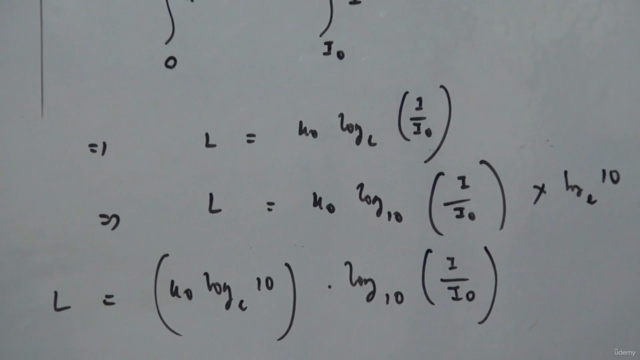 ∫ ∫
0 I₀
⇒ L = k₀ logₑ (I/I₀)
⇒ L = k₀ log₁₀ (I/I₀) × logₑ 10
L = (k₀ logₑ 10) · log₁₀ (I/I₀)
ûdemy